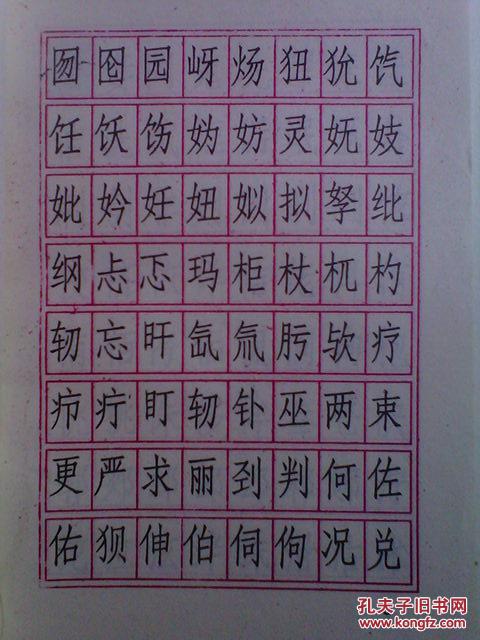 囫囵园岈炀狃狁饩
饪饫饬妫妨灵妩妓
妣妗妊妞姒拟孥纰
纲忐忑玛柜杖杌杓
轫忘旰氙氚肟欤疗
疖疔盯轫钋巫两束
更严求丽刭判何佐
佑狈伸伯伺佝况兑
孔夫子旧书网
www.kongfz.com